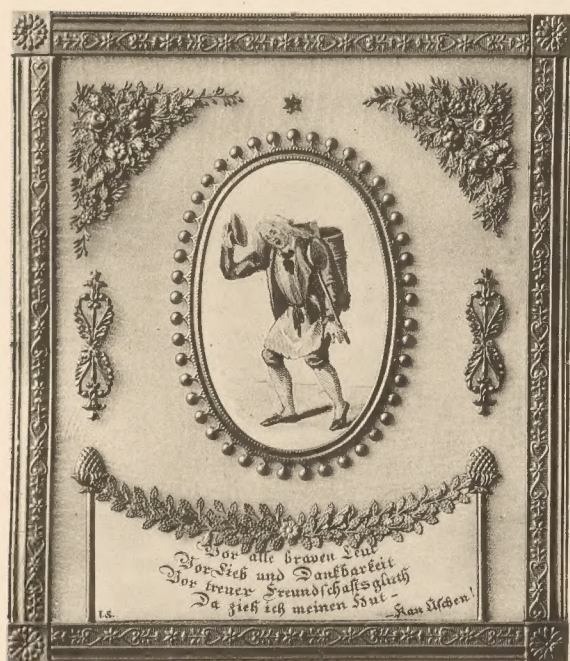 Vor alle braven Leut
Vor Lieb und Dankbarkeit
Vor treuer Freundschaftsgluth
Da zieh ich meinen Hut –
– Aschen!
I.E.